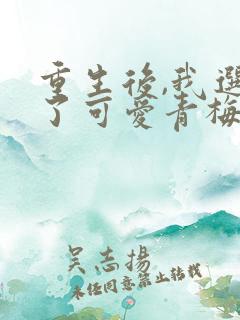 重生後,我選
了可愛青梅
吳志揚
未经同意禁止转载